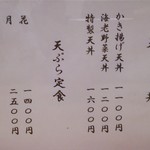 かき揚げ天丼 一一〇〇円
海老野菜天丼 一二〇〇円
特製天丼 一六〇〇円
天ぷら定食
花 一四〇〇円
月 二五〇〇円